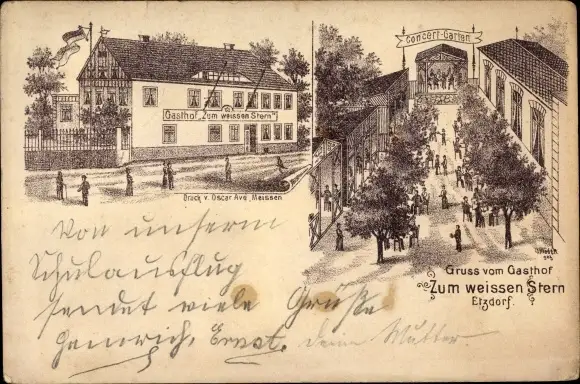 Concert-Garten
Gasthof „Zum weissen Stern“
Druck v. Oscar Ave, Meissen
Gruss vom Gasthof
Zum weissen Stern
Etzdorf.
Von unserm
Schulausflug
sendet viele Grüße
Heinrich, Ernst. deine Mutter.